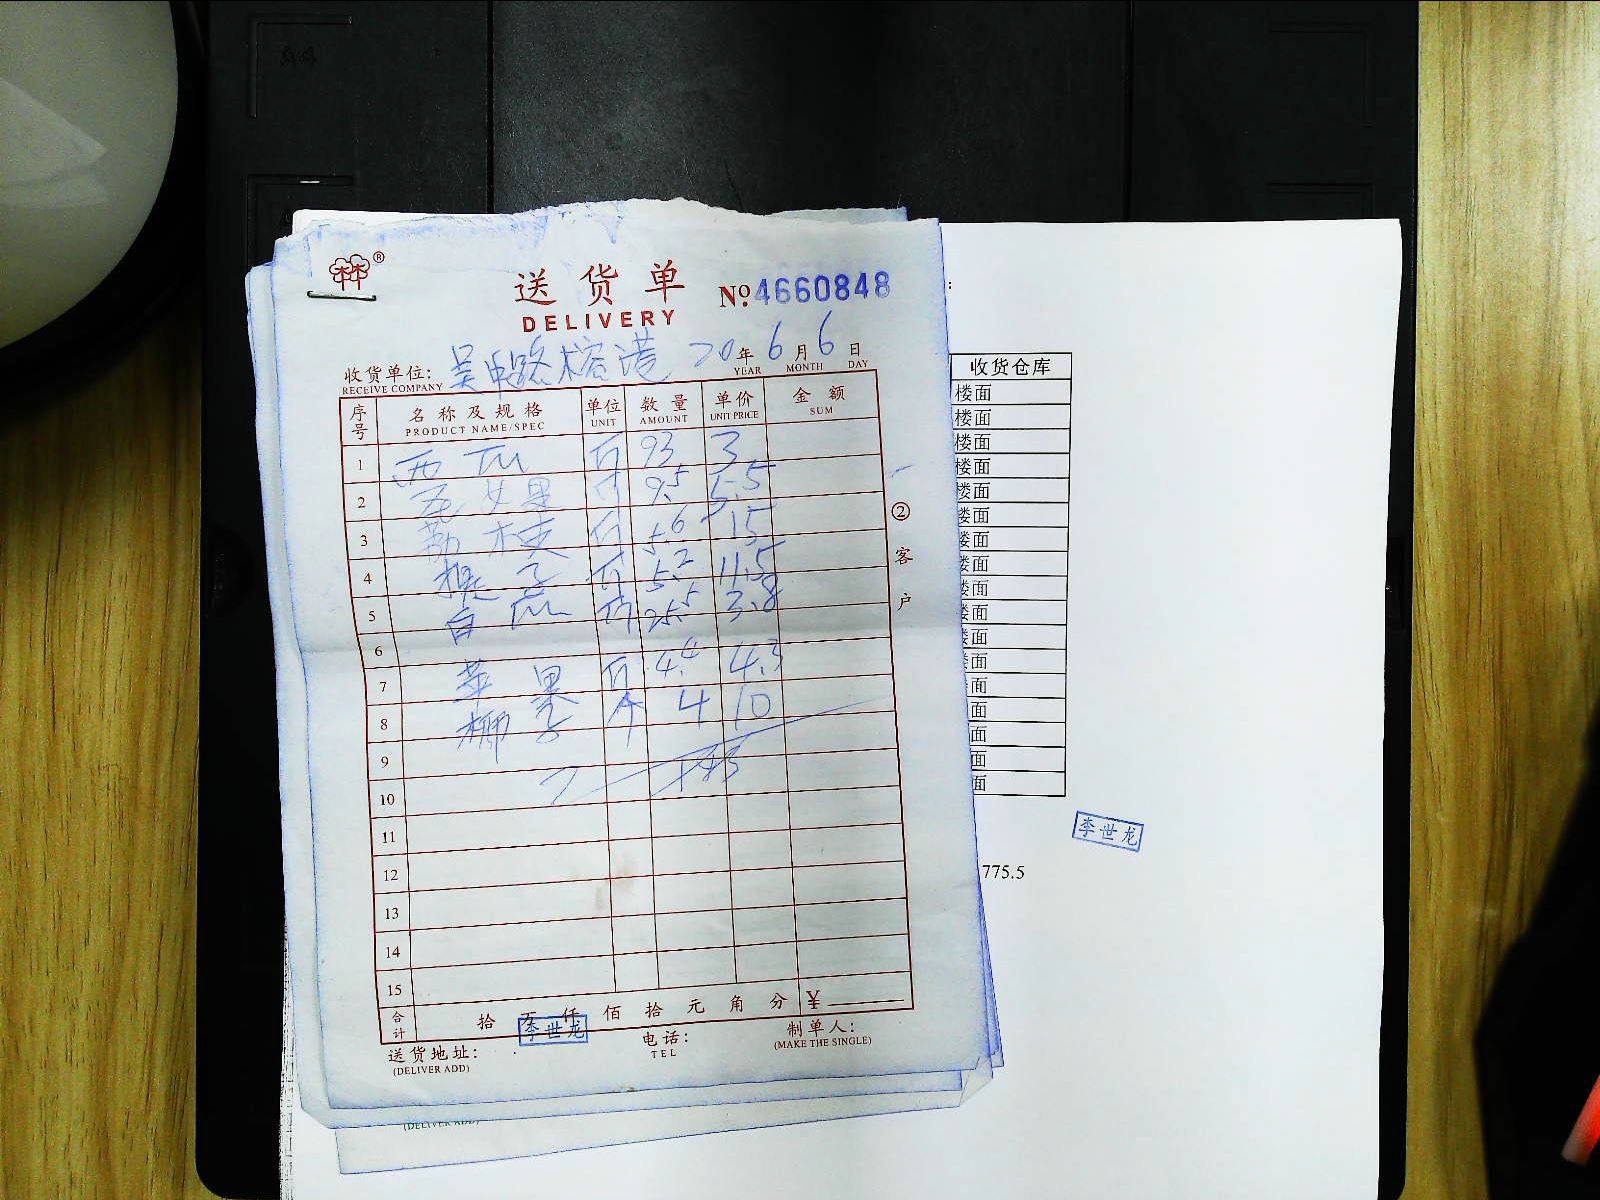 林®
送货单
No.4660848
DELIVERY
收货单位: 吴中路榕港 20年6月6日
RECEIVE COMPANY YEAR MONTH DAY
序号 名称及规格 单位 数量 单价 金额
PRODUCT NAME/SPEC UNIT AMOUNT UNIT PRICE SUM
1 西瓜 斤 93 3
2 圣女果 斤 9.5 5.5
3 斤 5.6 15
4 提子 斤 5.2 11.5
5 白瓜 斤 25.5 3.8
6
7 苹果 斤 4.4 4.3
8 椰子 个 4 10
9
10
11
12
13
14
15
合计 拾万仟佰拾元角分 ¥
李世龙
送货地址: 电话: 制单人:
(DELIVER ADD) TEL (MAKE THE SINGLE)
②客户
(DELIVER ADD)
:
收货仓库
楼面
楼面
楼面
楼面
楼面
楼面
楼面
楼面
楼面
楼面
楼面
面
面
面
面
面
面
李世龙
775.5